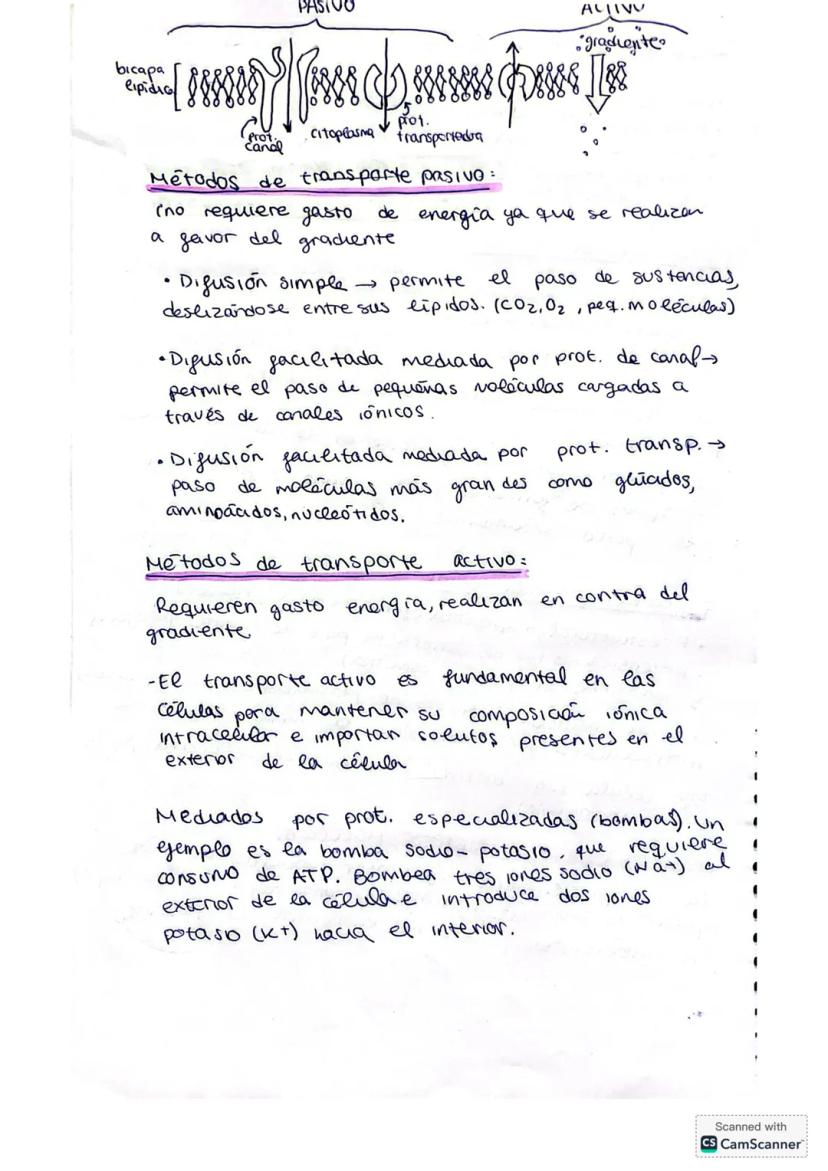 PASIVO
ACTIVO
gradiente
bicapa
lipídica
prot.
canal
citoplasma
prot.
transportadora
Métodos de transporte pasivo:
(no requiere gasto de energía ya que se realizan
a favor del gradiente
• Difusión simple → permite el paso de sustencias,
deslizándose entre sus lípidos. (CO2, O2, peq. moléculas)
• Difusión facilitada mediada por prot. de canal →
permite el paso de pequeñas moléculas cargadas a
través de canales iónicos.
• Difusión facilitada mediada por prot. transp. →
paso de moléculas más grandes como glúcidos,
aminoácidos, nucleótidos.
Métodos de transporte activo:
Requieren gasto energía, realizan en contra del
gradiente
- El transporte activo es fundamental en las
células para mantener su composición iónica
intracelular e importar solutos presentes en el
exterior de la célula
Mediados por prot. especializadas (bombas). Un
ejemplo es la bomba sodio-potasio, que requiere
consumo de ATP. Bombea tres iones sodio (Na+) al
exterior de la célula e introduce dos iones
potasio (K+) hacia el interior.
Scanned with
CS CamScanner